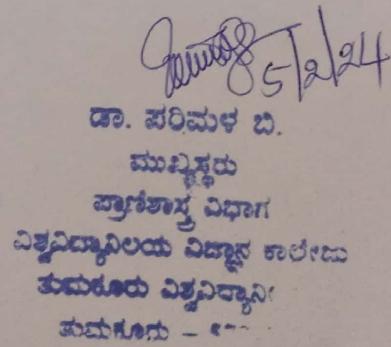 5/2/24
ಡಾ. ಪರಿಮಳ ಬಿ.
ಮುಖ್ಯಸ್ಥರು
ಪ್ರಾಣಿಶಾಸ್ತ್ರ ವಿಭಾಗ
ವಿಶ್ವವಿದ್ಯಾನಿಲಯ ವಿಜ್ಞಾನ ಕಾಲೇಜು
ತುಮಕೂರು ವಿಶ್ವವಿದ್ಯಾನಿ
ತುಮಕೂರು –